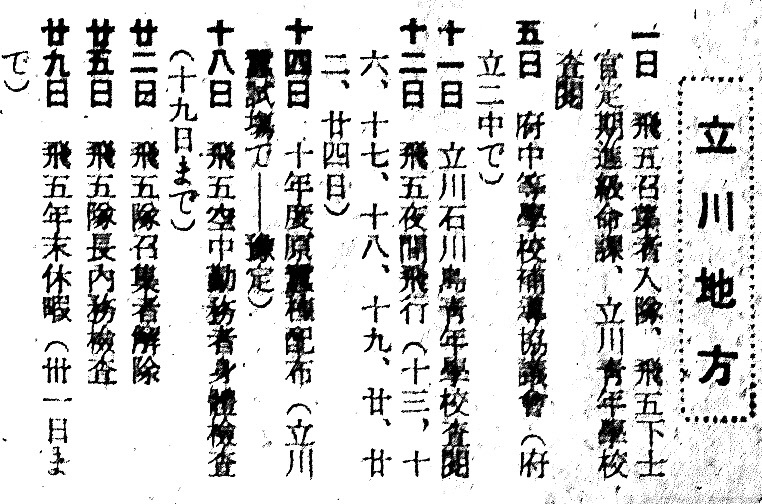 立川地方
一日　飛五召集者入隊、飛五下士
官定期進級命課、立川青年學校
査閲
五日　府中等學校補導協議會（府
立二中で）
十一日　立川石川島青年學校査閲
十二日　飛五夜間飛行（十三、十
六、十七、十八、十九、廿、廿
二、廿四日）
十四日　十年度原蠶種配布（立川
蠶試場で――豫定）
十八日　飛五空中勤務者身體檢査
（十九日まで）
廿二日　飛五隊召集者解除
廿五日　飛五隊長内務檢査
廿九日　飛五年末休暇（卅一日ま
で）